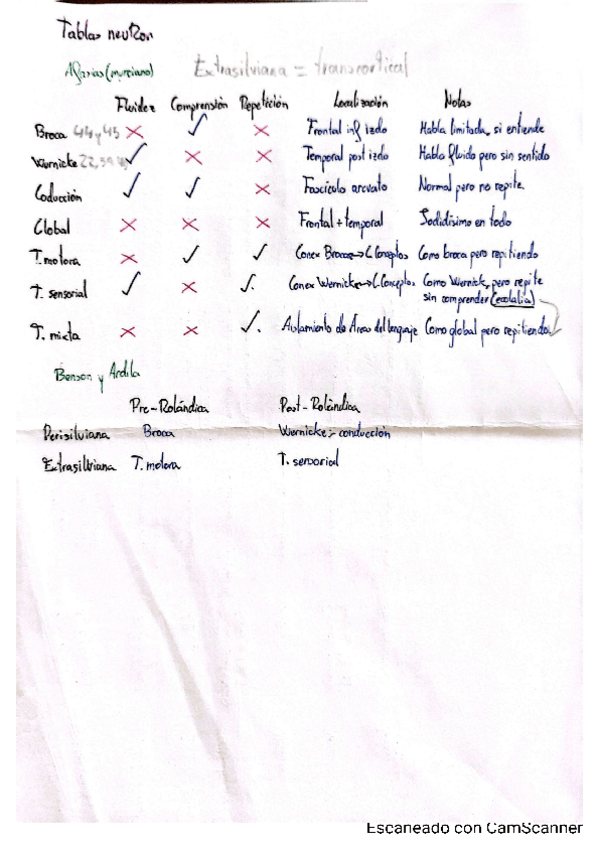 Tablas neutron
Afasias (murciano) Extrasilviana = transcortical
Fluidez Comprensión Repetición Localización Notas
Broca 44 y 45 ✗ ✓ ✗ Frontal inf izdo Habla limitada, si entiende
Wernicke 22, 39 ✓ ✗ ✗ Temporal post izdo Habla fluido pero sin sentido
Coducción ✓ ✓ ✗ Fascículo arcuato Normal pero no repite
Global ✗ ✗ ✗ Frontal + temporal Jodidísimo en todo
T. motora ✗ ✓ ✓ Conex Broca<->C. Conceptos Como broca pero repitiendo
T. sensorial ✓ ✗ ✓. Conex Wernicke<->C. Conceptos Como Wernick, pero repite
sin comprender (ecolalia)
T. mixta ✗ ✗ ✓. Aislamiento de Áreas del lenguaje Como global pero repitiendo
Benson y Ardila
Pre-Rolándica Post-Rolándica
Perisilviana Broca Wernicke y conducción
Extrasilviana T. motora T. sensorial
Escaneado con CamScanner